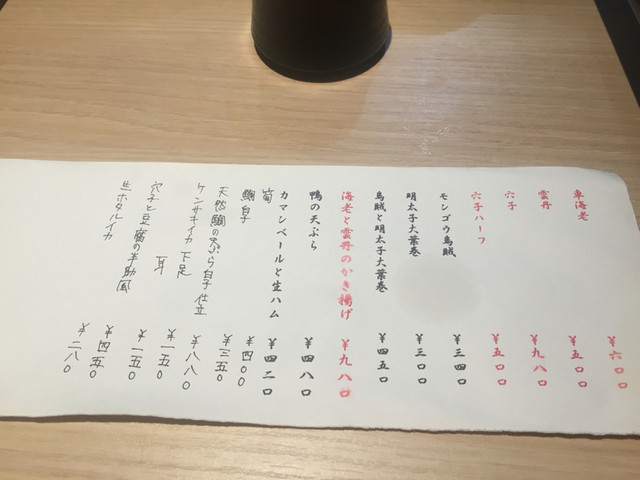 車海老 ¥六〇〇
雲丹 ¥五〇〇
穴子 ¥九八〇
穴子ハーフ ¥五〇〇
モンゴウ烏賊 ¥三四〇
明太子大葉巻 ¥三〇〇
烏賊と明太子大葉巻 ¥四五〇
海老と雲丹のかき揚げ ¥九八〇
鴨の天ぷら ¥四八〇
カマンベールと生ハム ¥四二〇
筍 ¥四〇〇
鯛白子 ¥三五〇
天然鯛の天ぷら白子仕立 ¥八八〇
ケンサキイカ 下足 ¥一五〇
耳 ¥一五〇
穴子と豆腐の半助風 ¥四五〇
生ホタルイカ ¥二八〇